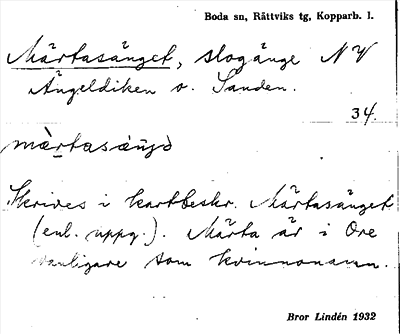 Boda sn, Rättviks tg, Kopparb. l.
Märtasänget, slogänge NV
Ängeldiken o. Sanden.
34.
märtasäŋə
Skrives i kartbeskr. Märtasänget
(enl. uppg.). Märta är i Ore
vanligare som kvinnonamn.
Bror Lindén 1932